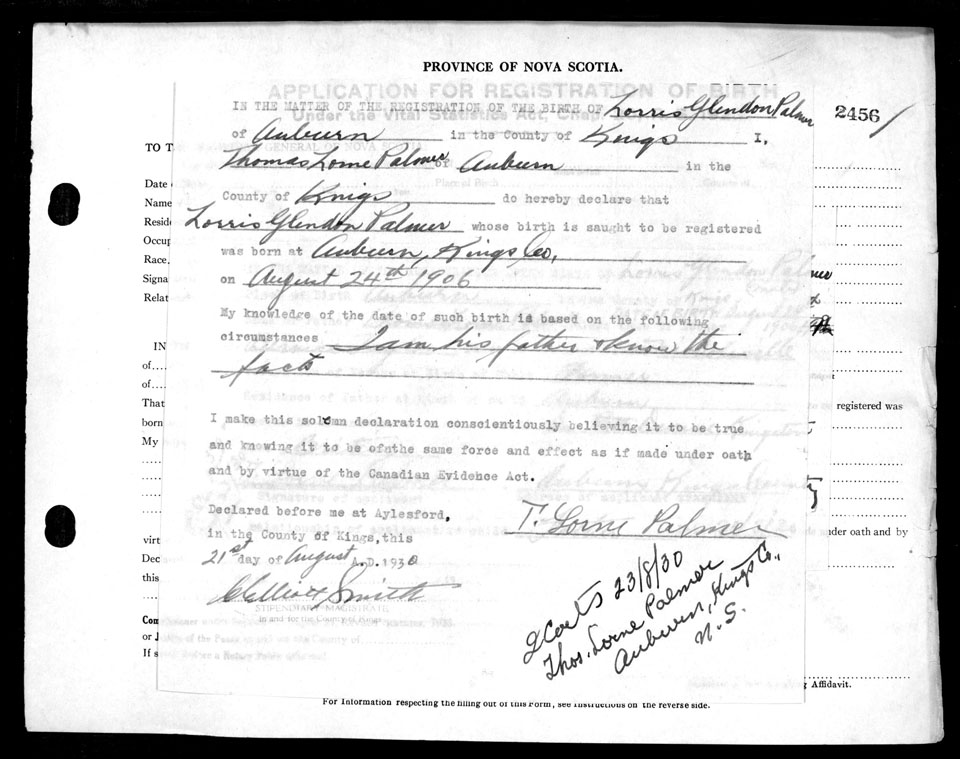 PROVINCE OF NOVA SCOTIA.
APPLICATION FOR REGISTRATION OF BIRTH
IN THE MATTER OF THE REGISTRATION OF THE BIRTH OF Lorris Glendon Palmer
2456
Under the Vital Statistics Act, Chap
of Auburn in the County of Kings I,
TO T
Thomas Lorne Palmer of Auburn in the
Date
County of Kings do hereby declare that
Name
Lorris Glendon Palmer whose birth is saught to be registered
Resid
Occup
was born at Auburn, Kings Co,
Race.
on August 24th 1906
Signa
Relat
My knowledge of the date of such birth is based on the following
circumstances I am his father & know the
facts
IN
of....
of....
That
registered was
born
My
I make this solemn declaration conscientiously believing it to be true
and knowing it to be ofnthe same force and effect as if made under oath
and by virtue of the Canadian Evidence Act.
Declared before me at Aylesford,
T. Lorne Palmer
in the County of Kings, this
virt
nder oath and by
21st day of August A.D. 1930
Dec
this
C Elliott Smith
STIPENDIARY MAGISTRATE
in and for the County of Kings
2 Certs 23/8/30
Thos. Lorne Palmer
Auburn, Kings Co.,
N.S.
Com
or J
If s
g Affidavit.
For Information respecting the filling out of this Form, see Instructions on the reverse side.